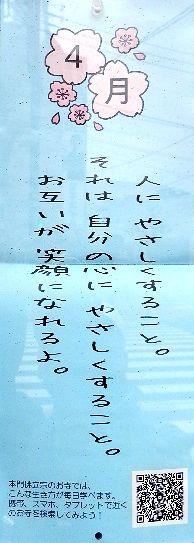 4月
人にやさしくすること。
それは自分の心にやさしくすること。
お互いが笑顔になれるよ。
本門佛立宗のお寺では、
こんな生き方が毎日学べます。
携帯、スマホ、タブレットで近く
のお寺を検索してみよう!